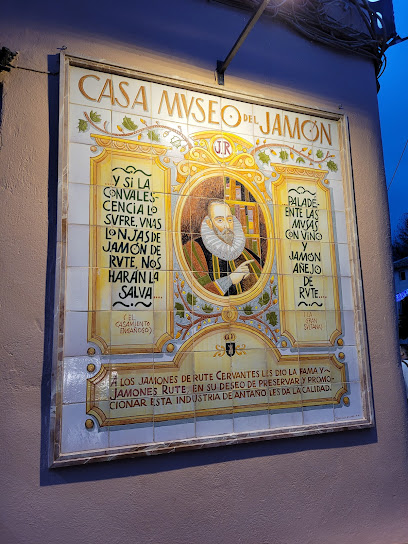 CASA MVSEO DEL JAMÓN
J.R
Y SI LA
CONVALES-
CENCIA LO
SUFRE, VNAS
LONJAS DE
JAMÓN DE
RVTE, NOS
HARÁN LA
SALVA....
(EL
CASAMIENTO
ENGAÑOSO)
...PALADÉ-
ENTE LAS
MVSAS
CON VINO
Y
JAMÓN
AÑEJO
DE
RVTE...
(LA
GRAN
SULTANA)
A LOS JAMONES DE RUTE CERVANTES LES DIO LA FAMA Y
JAMONES RUTE, EN SU DESEO DE PRESERVAR Y PROMO-
CIONAR ESTA INDUSTRIA DE ANTAÑO LES DA LA CALIDAD.